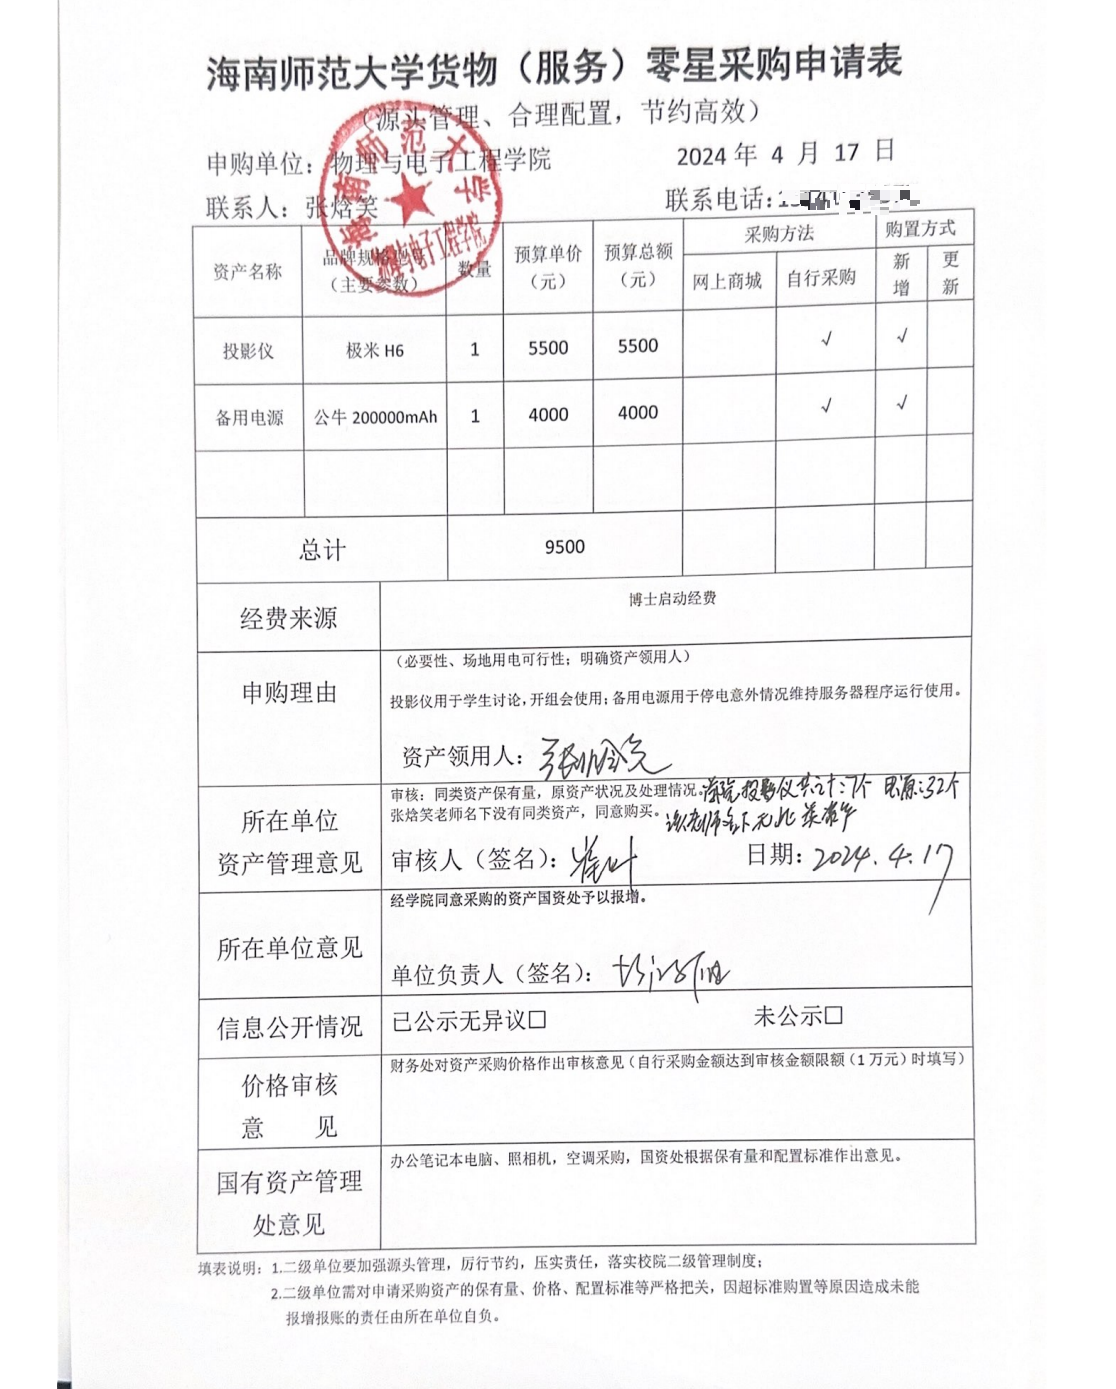 海南师范大学货物（服务）零星采购申请表
（源头管理、合理配置，节约高效）
申购单位：物理与电子工程学院 2024 年 4 月 17 日
联系人：张焓笑 联系电话：
海南师范大学
物理与电子工程学院
资产名称 品牌规格型号（主要参数） 数量 预算单价（元） 预算总额（元） 采购方法 购置方式
网上商城 自行采购 新增 更新
投影仪 极米 H6 1 5500 5500 √ √
备用电源 公牛 200000mAh 1 4000 4000 √ √
总计 9500
经费来源 博士启动经费
申购理由 （必要性、场地用电可行性；明确资产领用人）
投影仪用于学生讨论，开组会使用；备用电源用于停电意外情况维持服务器程序运行使用。
资产领用人：张焓笑
所在单位资产管理意见 审核：同类资产保有量，原资产状况及处理情况。 投影仪共计：7个 电源：32个
张焓笑老师名下没有同类资产，同意购买。 该老师名下无此类资产
审核人（签名）： 日期：2024.4.17
所在单位意见 经学院同意采购的资产国资处予以报增。
单位负责人（签名）：
信息公开情况 已公示无异议□ 未公示□
价格审核意 见 财务处对资产采购价格作出审核意见（自行采购金额达到审核金额限额（1 万元）时填写）
国有资产管理处意见 办公笔记本电脑、照相机，空调采购，国资处根据保有量和配置标准作出意见。
填表说明：1.二级单位要加强源头管理，厉行节约，压实责任，落实校院二级管理制度；
2.二级单位需对申请采购资产的保有量、价格、配置标准等严格把关，因超标准购置等原因造成未能
报增报账的责任由所在单位自负。